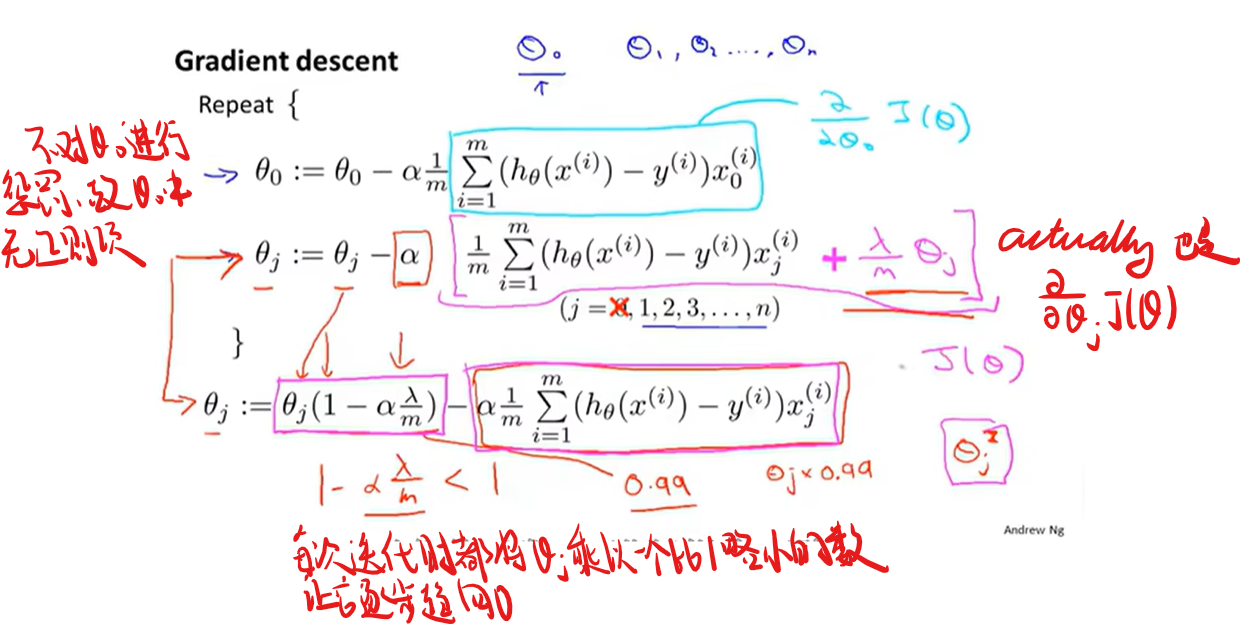 Gradient descent
θ₀ θ₁, θ₂ ...., θₙ
↑
Repeat {
∂/∂θ₀ J(θ)
不对θ₀进行
惩罚,故θ₀中
无正则项
→ θ₀ := θ₀ − α 1/m ∑ᵢ₌₁ᵐ (h_θ(x⁽ⁱ⁾) − y⁽ⁱ⁾)x₀⁽ⁱ⁾
→ θⱼ := θⱼ − α [ 1/m ∑ᵢ₌₁ᵐ (h_θ(x⁽ⁱ⁾) − y⁽ⁱ⁾)xⱼ⁽ⁱ⁾ + λ/m θⱼ ]
actually 也是
∂/∂θⱼ J(θ)
(j = 0, 1, 2, 3, . . . , n)
}
J(θ)
θⱼ := θⱼ(1 − α λ/m) − α 1/m ∑ᵢ₌₁ᵐ (h_θ(x⁽ⁱ⁾) − y⁽ⁱ⁾)xⱼ⁽ⁱ⁾
θⱼ²
1 − α λ/m < 1 0.99 θⱼ × 0.99
Andrew Ng
每次迭代时都将θⱼ乘以一个比1略小的数
让它逐步趋向0